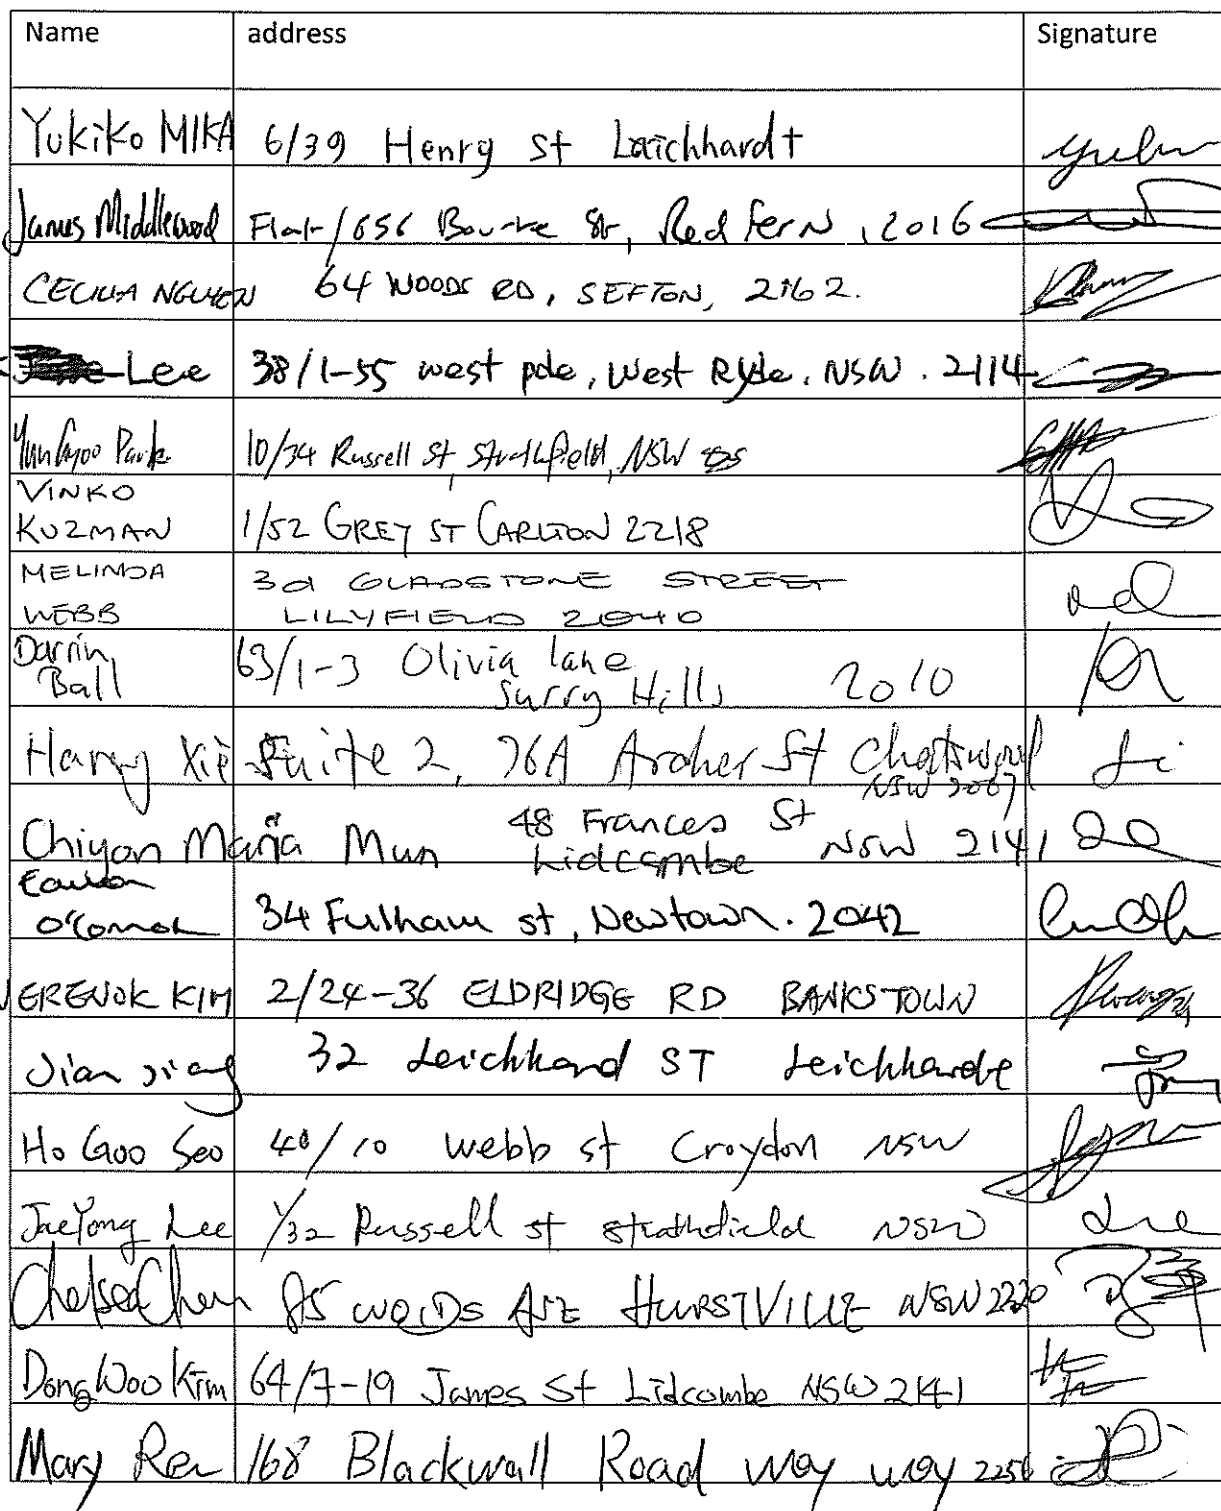 Name address Signature
Yukiko MIKA 6/39 Henry St Laichhardt
James Middlewood Flat /656 Bourke St, Redfern, 2016
CECILIA NGUYEN 64 WOODS RD, SEFTON, 2162.
Lee 38/1-55 west pde, West Ryde, NSW. 2114
Park 10/34 Russell St, Strathfield, NSW
VINKO
KUZMAN 1/52 GREY ST CARLTON 2218
MELINDA 3a GLADSTONE STREET
WEBB LILYFIELD 2040
Darrin 63/1-3 Olivia lane
Ball Surry Hills 2010
Harry Xie Suite 2, 76A Archer St Chatswood
NSW 2067
48 Frances St
Chiyon Maria Mun Lidcombe NSW 2141
O'Connor 34 Fulham st, Newtown. 2042
KIM 2/24-36 ELDRIDGE RD BANKSTOWN
Jian Jiang 32 Leichhard ST Leichharde
Ho Goo Seo 40/10 Webb st Croydon NSW
JaeYong Lee 1/32 Russell st strathdield NSW
Chelsea Chen 85 WOIDS AVE HURSTVILLE NSW 2220
DongWoo Kim 64/7-19 James St Lidcombe NSW 2141
Mary Ren 168 Blackwall Road woy woy 2256